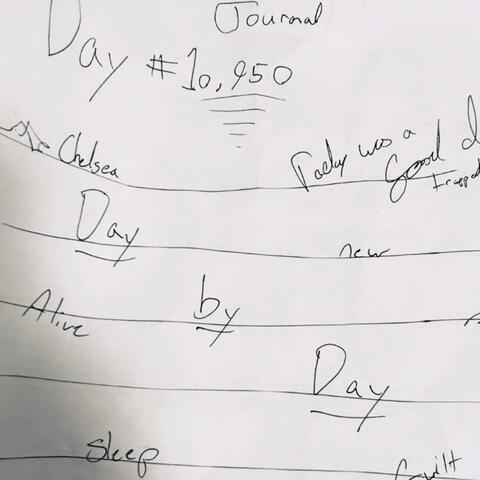 Journal
Day #10,950
Chelsea
Today was a
Good
Day
new
Alive
by
Day
Sleep
Guilt